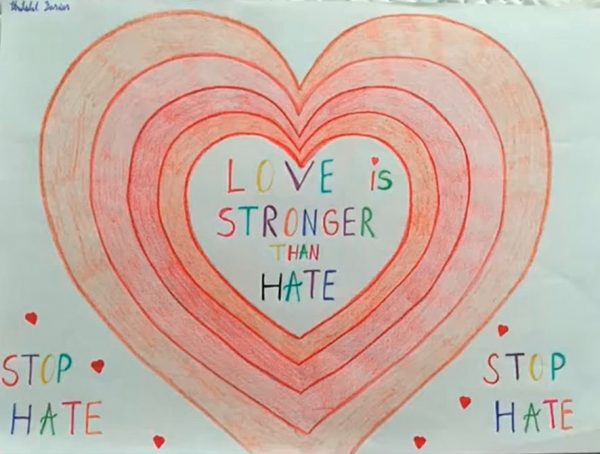 LOVE is
STRONGER
THAN
HATE
STOP
HATE
STOP
HATE